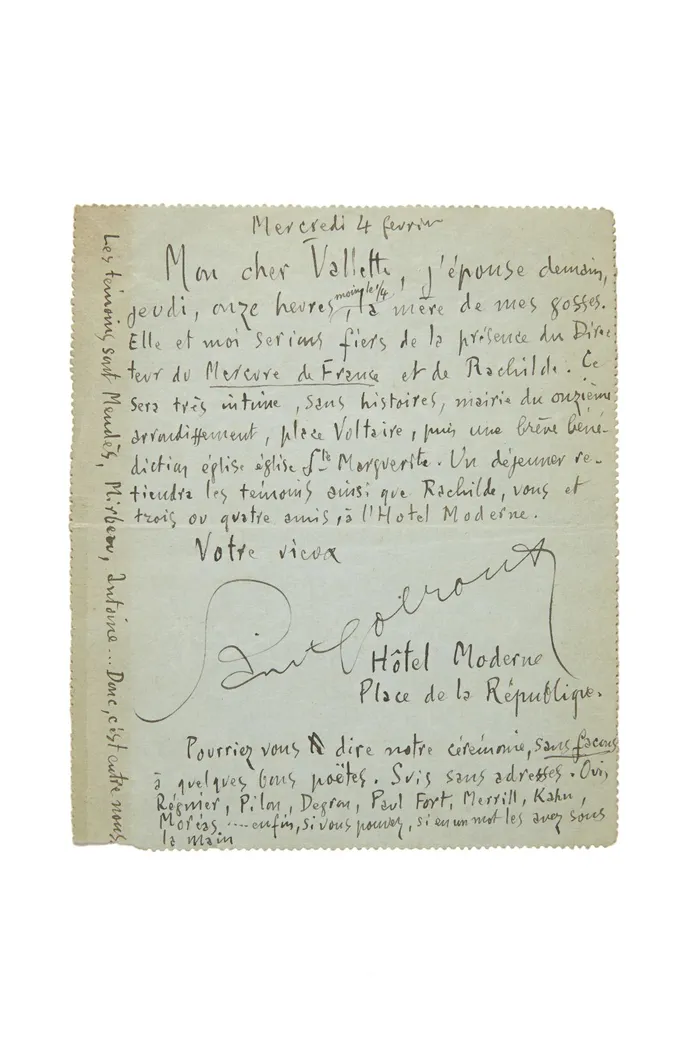 Mercredi 4 février
Mon cher Vallette, j'épouse demain,
jeudi, onze heures, moins le 1/4, la mère de mes gosses.
Elle et moi serions fiers de la présence du Direc
teur du Mercure de France et de Rachilde. Ce
sera très intime, sans histoires, mairie du onzième
arrondissement, place Voltaire, puis une brève béné-
diction église église Ste Marguerite. Un déjeuner re-
tiendra les témoins ainsi que Rachilde, vous et
trois ou quatre amis, à l'Hotel Moderne.
Votre vieux
Hôtel Moderne
Place de la République.
Pourriez vous dire notre cérémonie, sans facons
à quelques bons poëtes. Suis sans adresses.
Régnier, Pilon, Degron, Paul Fort, Merrill, Kahn,
Moréas .... enfin, si vous pouvez, si en un mot les avez sous
la main
Les témoins sont Mendès, Mirbeau, Antoine... Donc, c'est entre nous.